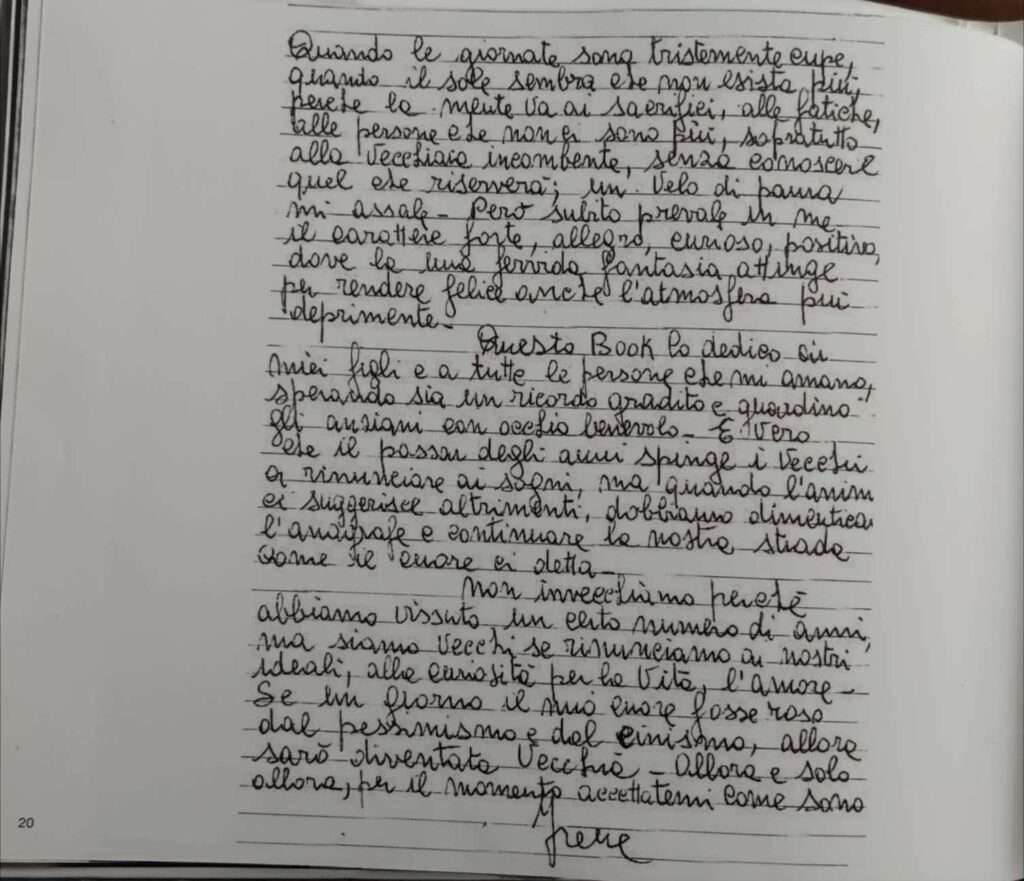 Quando le giornate sono tristemente cupe,
quando il sole sembra che non esista più,
perché la mente va ai sacrifici, alle fatiche,
alle persone che non ci sono più, sopratutto
alla Vecchiaia incombente, senza conoscere
quel che riserverà; un Velo di paura
mi assale - Però subito prevale in me
il carattere forte, allegro, curioso, positivo,
dove la mia fervida fantasia attinge
per rendere felice anche l'atmosfera più
deprimente -
Questo Book lo dedico ai
miei figli e a tutte le persone che mi amano,
sperando sia un ricordo gradito e guardino
gli anziani con occhio benevolo - E Vero
che il passar degli anni spinge i Vecchi
a rinunciare ai sogni, ma quando l'anim
ci suggerisce altrimenti, dobbiamo dimenticar
l'anagrafe e continuare la nostra strada
come il cuore ci detta -
Non invecchiamo perché
abbiamo vissuto un certo numero di anni,
ma siamo Vecchi se rinunciamo ai nostri
ideali, alla curiosità per la Vita, l'amore -
Se un giorno il mio cuore fosse roso
dal pessimismo e dal cinismo, allora
sarò diventata Vecchia - Allora e solo
allora, per il momento accettatemi come sono
Irene
20